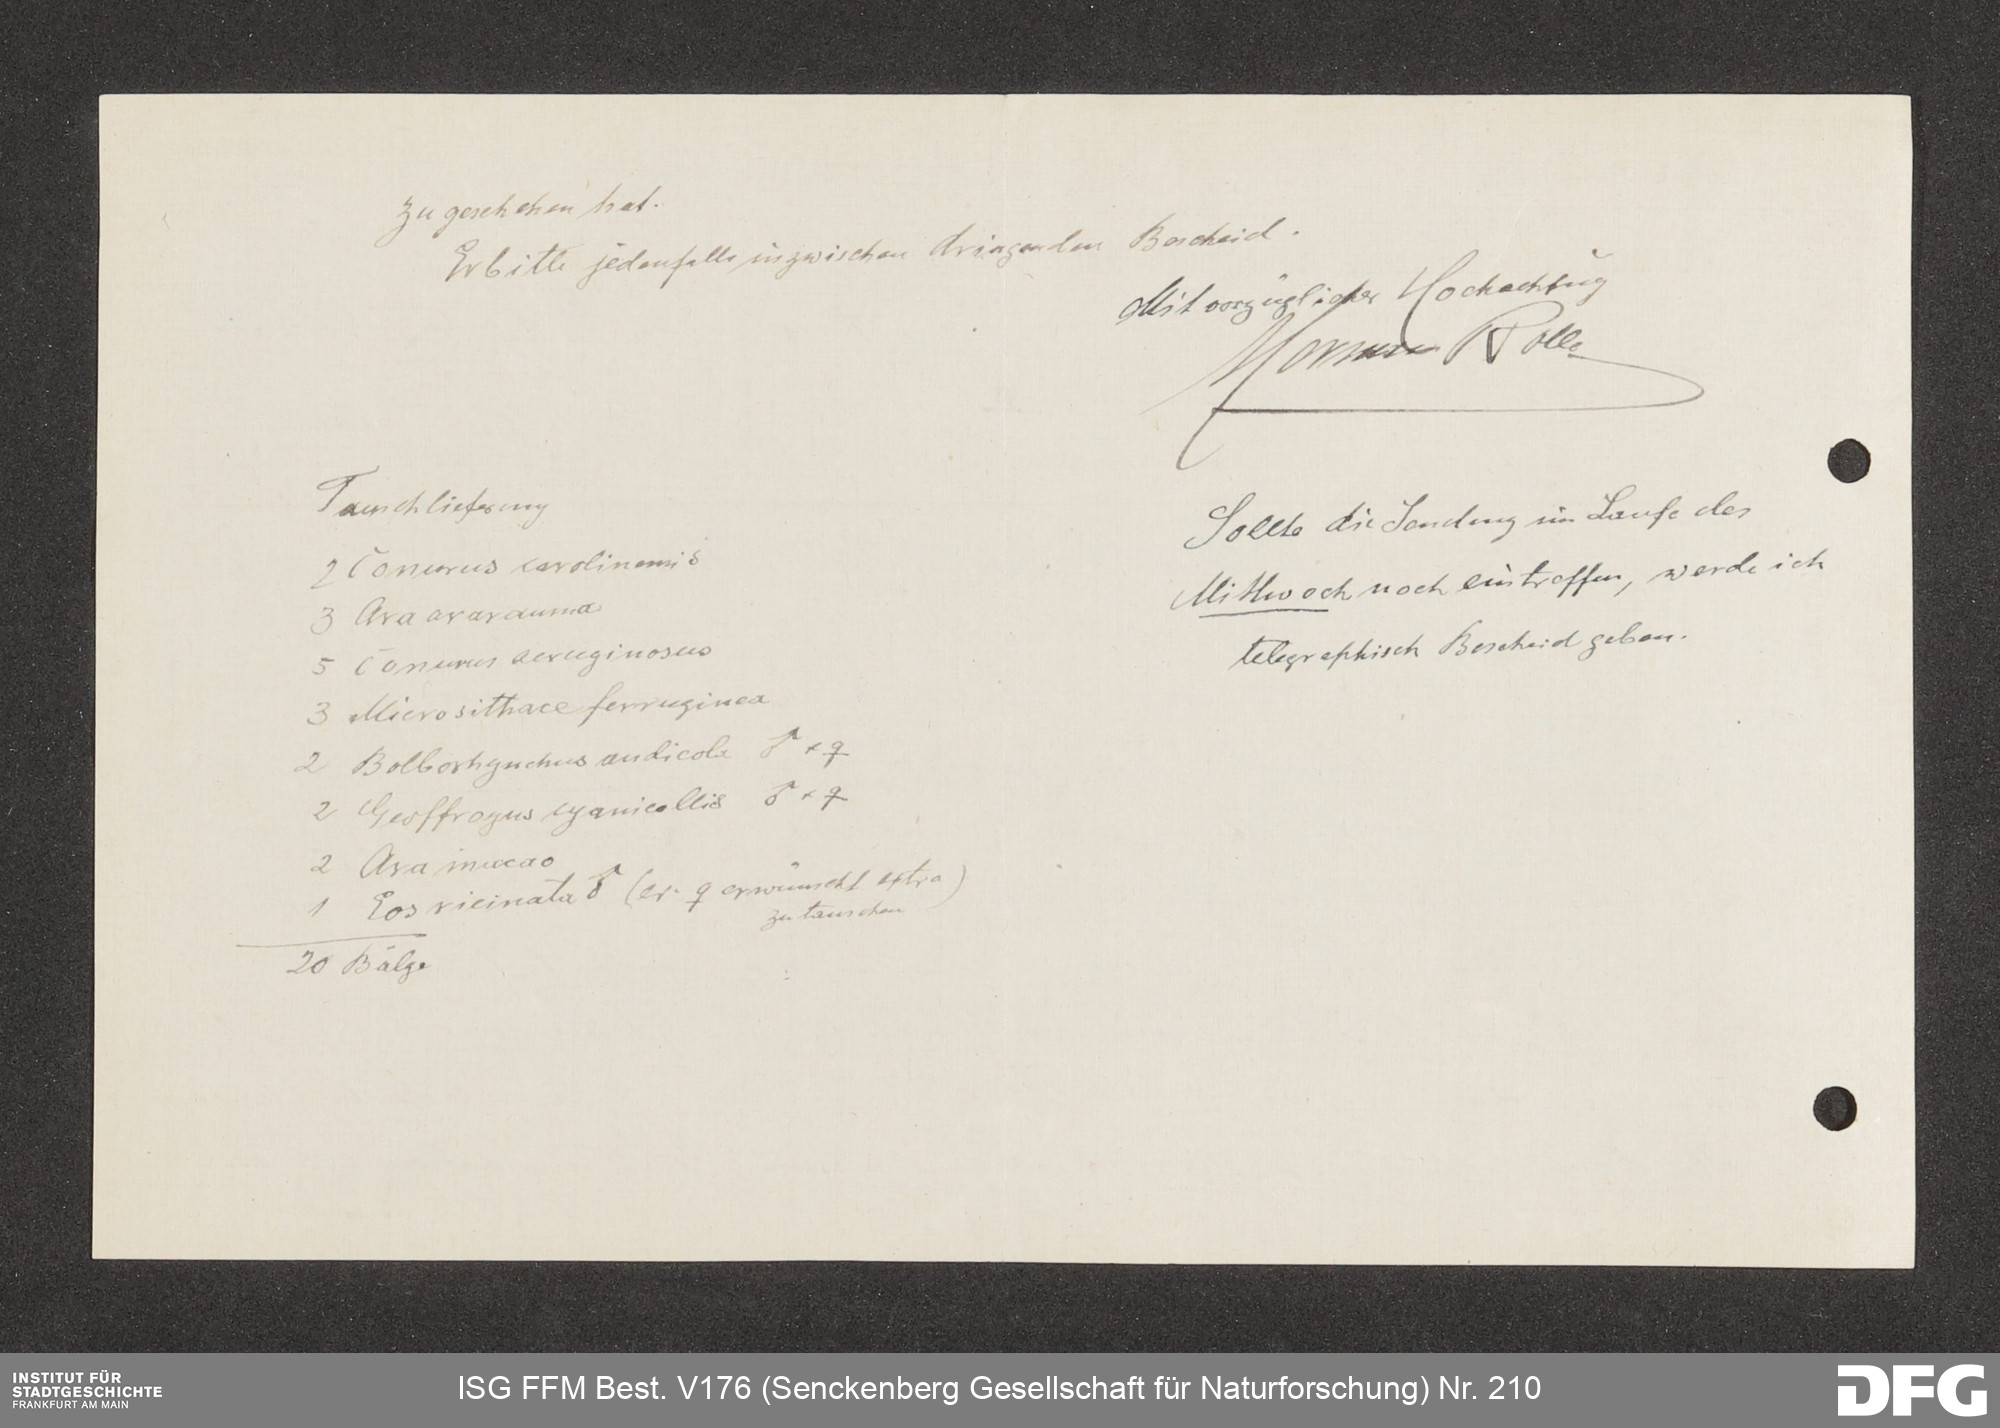 zu geschehen hat.
Erbitte jedenfalls inzwischen dringenden Bescheid.
Mit vorzüglicher Hochachtung
Hermann Rolle
Tauschlieferung
2 Conurus carolinensis
3 Ara ararauna
5 Conurus aeruginosus
3 Microsithace ferruginea
2 Bolborhynchus andicola ♂ + ♀
2 Geoffroyus cyanicollis ♂ + ♀
2 Ara macao
1 Eos ricinata ♂ (ev. ♀ erwünscht extra)
zu tauschen
20 Bälge
Sollte die Sendung im Laufe des
Mittwoch noch eintreffen, werde ich
telegraphisch Bescheid geben.
INSTITUT FÜR
STADTGESCHICHTE
FRANKFURT AM MAIN
ISG FFM Best. V176 (Senckenberg Gesellschaft für Naturforschung) Nr. 210
DFG